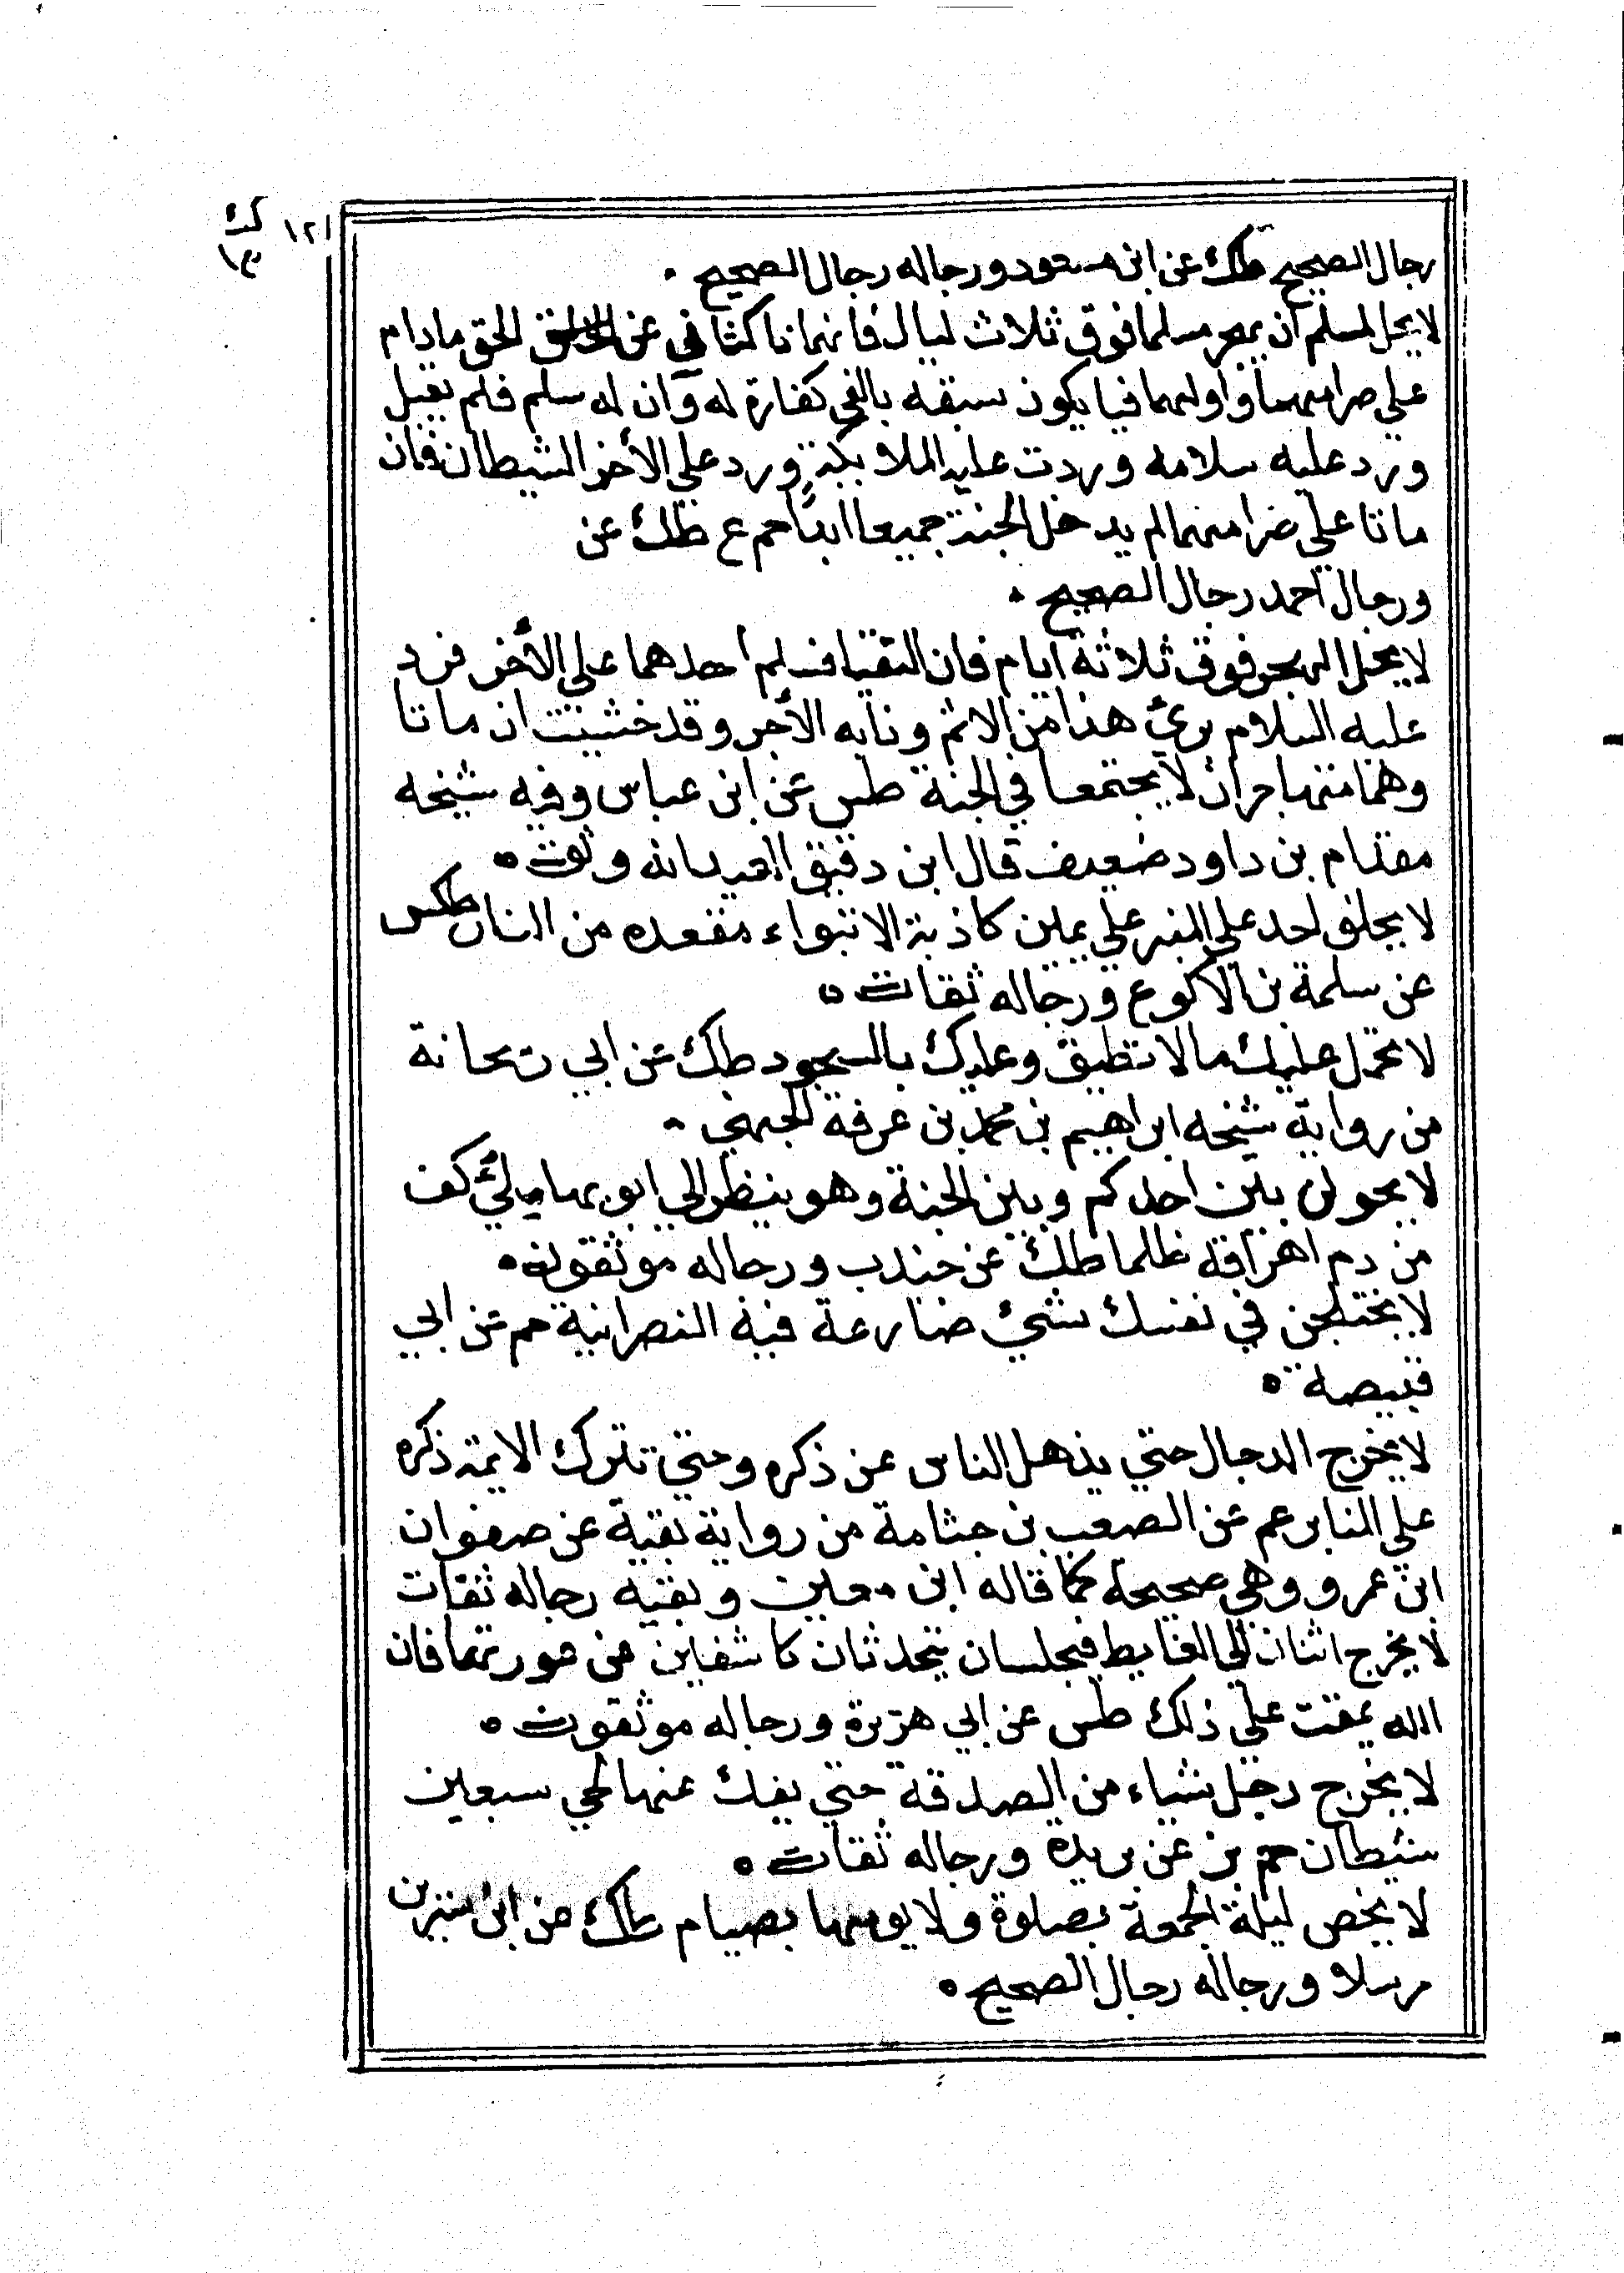 ١٢١
رجال الصحيح طك عن ابن مسعود ورجاله رجال الصحيح
لا يحل لمسلم ان يهجر مسلما فوق ثلاث ليال فانهما ناكثا في عن الحق مادام
علي صرامهما واولهما فيا يكون سبقه بالفي كفارة له وان له سلم فلم يقبل
ورد عليه سلامه وردت عليه الملايكة ورد علي الأخر الشيطان فان
ماتا علي ضرامهما لم يدخل الجنة جميعا ابدا حم ع طك عن
ورجال احمد رجال الصحيح
لا يحل الهجر فوق ثلاثة ايام فان التقيا فسلم احدهما علي الأخر فرد
عليه السلام برئ هذا من الاثم ونابه الأجر وقد خشيت ان ماتا
وهما متهاجران لا يجتمعا في الجنة طس عن ابن عباس وفيه شيخه
مقدام بن داود ضعيف قال ابن دقيق العيد انه وثق
لا يحلف احد علي المنبر علي يمين كاذبة الا تبواء مقعده من النار طكس
عن سلمة بن الاكوع ورجاله ثقات
لا تحمل عليك ما لا تطيق وعليك بالسجود طك عن ابي ريحانة
من رواية شيخه ابراهيم بن محمد بن عرفة الجهني
لا يحولن بين احدكم وبين الجنة وهو ينظر الي ابوبها ملئ كف
من دم اهراقه ظلما طك عن جندب ورجاله موثقون
لا يختلجن في نفسك شئ ضارعة فيه النصرانية حم عن ابي
قبيصة
لا يخرج الدجال حتي يذهل الناس عن ذكره وحتي تترك الايمة ذكره
علي المنابر عم عن الصعب بن جثامة من رواية بقية عن صفوان
ابن عمرو وهي صحيحة كما قاله ابن معين وبقية رجاله ثقات
لا يخرج اثنان الي الغايط فيجلسان يتحدثان كاشفين عن عورتهما فان
الله يمقت علي ذلك طس عن ابي هريرة ورجاله موثقون
لا يخرج رجل شياء من الصدقة حتي يفك عنها لحي سبعين
شيطان حم بز عن بريده ورجاله ثقات
لا يخص ليلة الجمعة بصلوة ولا يومها بصيام طك عن ابن سيرين
مرسلا ورجاله رجال الصحيح